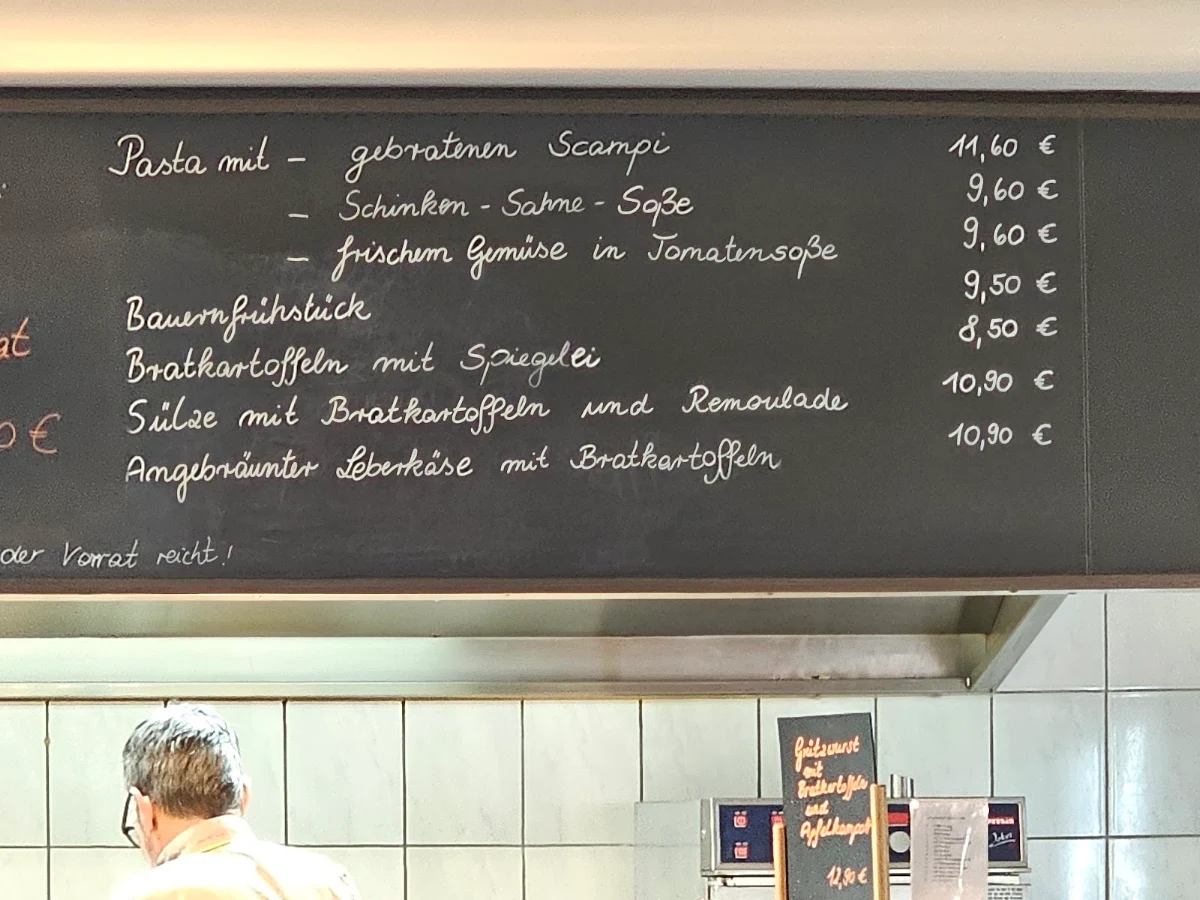 Pasta mit - gebratenen Scampi 11,60 €
- Schinken - Sahne - Soße 9,60 €
- frischem Gemüse in Tomatensoße 9,60 €
Bauernfrühstück 9,50 €
Bratkartoffeln mit Spiegelei 8,50 €
Sülze mit Bratkartoffeln und Remoulade 10,90 €
Angebräunter Leberkäse mit Bratkartoffeln 10,90 €
at
0 €
der Vorrat reicht!
Grützwurst
mit
Bratkartoffeln
und
Apfelkompott
12,90 €